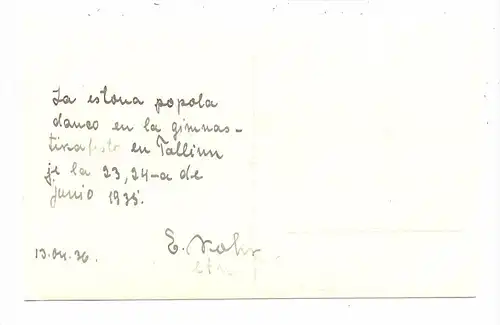 La estona popola
danco en la gimnas-
tikafesto en Tallinn
je la 23, 24-a de
junio 1935.
E.
13.04.36.